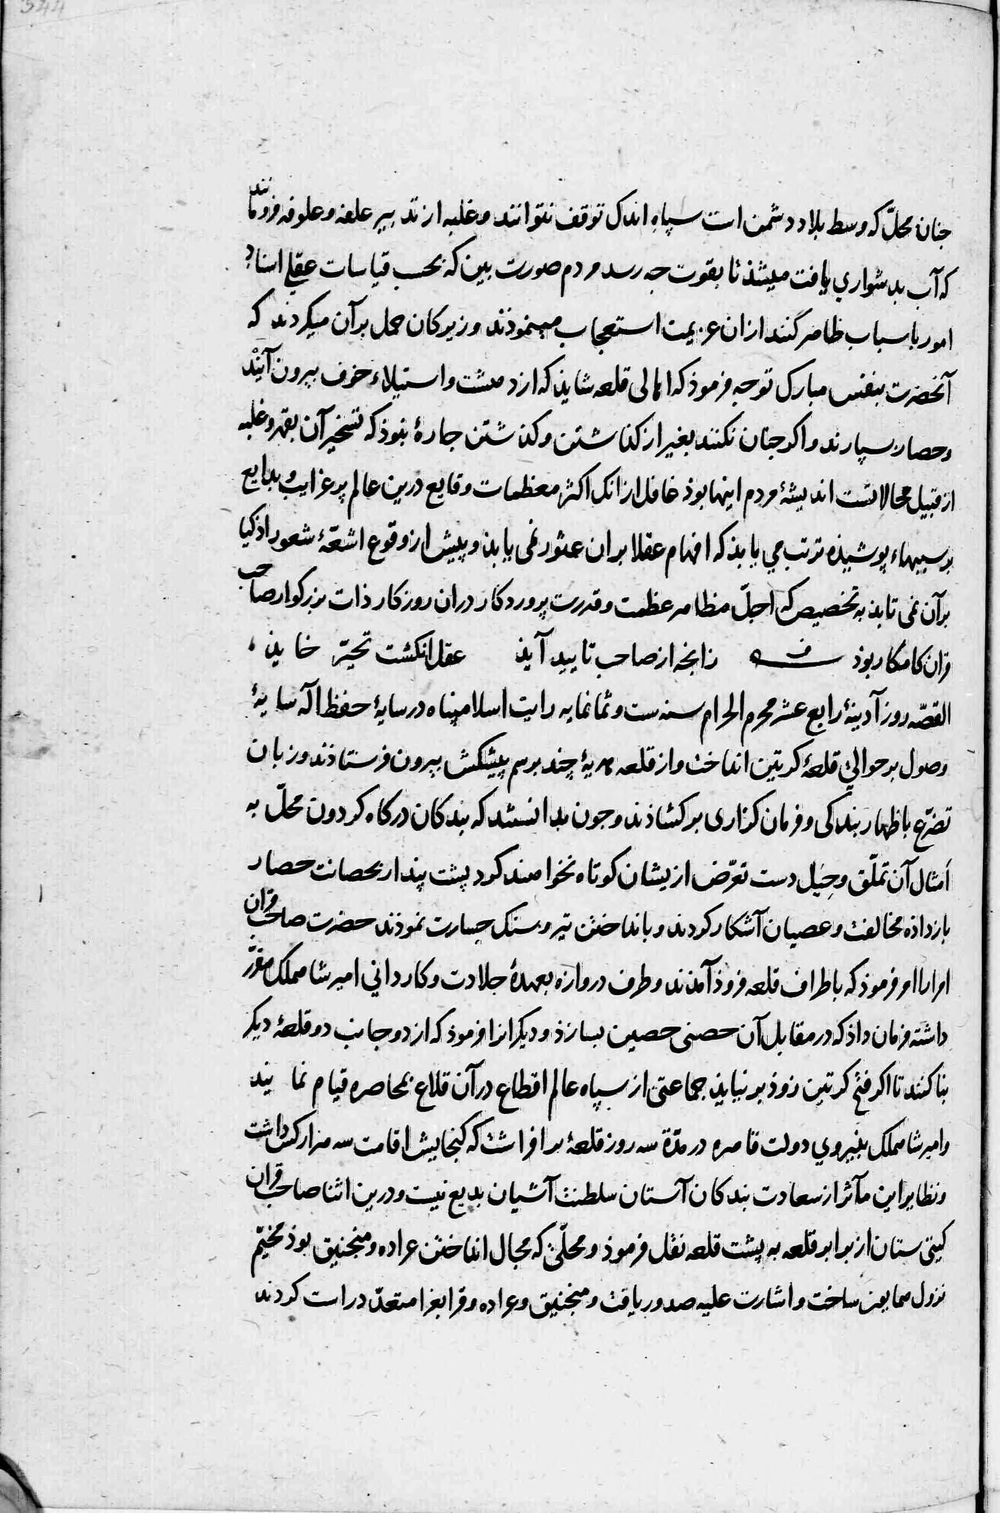 جنان محلّ که وسط بلاد دشمن است سپاه اندک توقف نتوانند و غلبه از تدبیر علفه و علوفه فرومانند
که آب بدشواری یافت میشد تا بقوت جه رسد مردم صورت بین که بحسب قیاسات عقلی اسناد
امور باسباب ظاهر کنند از ان عزیمت استعجاب مینموذند و زیرکان حمل بر آن میکردند که
آنحضرت بنفس مبارک توجه فرموذ که اهالی قلعه شاید که از دهشت و استیلاء خوف بیرون آیند
و حصار بسپارند و اکر جنان نکنند بغیر از کذاشتن و کذشتن جارهٔ نبوذ که تسخیر آن بقهر و غلبه
از قبیل محالاتست اندیشهٔ مردم اینها بوذ غافل از انک اکثر معظمات وقایع درین عالم پر غرایب و بدایع
بر سببهاء پوشیذه ترتب می یابذ که افهام عقلا بر ان عثور نمی یابذ و پیش از وقوع اشعّهٔ شعور اذکیا
بر آن نمی تابذ به تخصیص که اجلّ مظاهر عظمت و قدرت پروردکار دران روزکار ذات بزرکوار صاحب
قران کامکار بوذ زانجه از صاحب تایید آیذ عقل انکشت تحیّر خایذ
القصّه روز آدینهٔ رابع عشر محرم الحرام سنه ست و ثمانمایه رایت اسلام پناه در سایهٔ حفظ اله سایهٔ
وصول بر حوالی قلعهٔ کرتین انداخت و از قلعه هدیهٔ چند برسم پیشکش بیرون فرستاذند و زبان
تضرّع باظهار بندکی و فرمان کزاری برکشاذند و جون بدانستند که بندکان درکاه کردون محلّ به
أمثال آن تملّق و حِیَل دست تعرّض ازیشان کوتاه نخواهند کرد پشت پندار بحصانت حصار
باز داذه مخالفت و عصیان آشکار کردند و بانداختن تیر و سنک جسارت نموذند حضرت صاحب قران
امرا را امر فرموذ که باطراف قلعه فروذ آمدند و طرف دروازه بعهدهٔ جلادت و کاردانی امیر شاهملک مقرّر
داشته فرمان داذ که در مقابل آن حصنی حصین بسازذ و دیکرانرا فرموذ که از دو جانب دو قلعهٔ دیکر
بنا کنند تا اکر فتح کرتین زوذ بر نیاید جماعتی از سپاه عالم اقطاع در آن قلاع بمحاصره قیام نمایند
و امیر شاهملک بنیروی دولت قاهره در مدّة سه روز قلعهٔ بر افراشت که کنجایش اقامت سه هزار کس داشت
و نظایر این مآثر از سعادت بندکان آستان سلطنت آشیان بدیع نیست و درین اثنا صاحب قران
کیتی ستان از برابر قلعه به پشت قلعه نقل فرموذ و محلّی که مجال انداختن عراده و منجنیق بوذ مخیّم
نزول همایون ساخت و اشارت علیه صدور یافت و منجنیق و عراده و قرابغرا متعدّد راست کردند